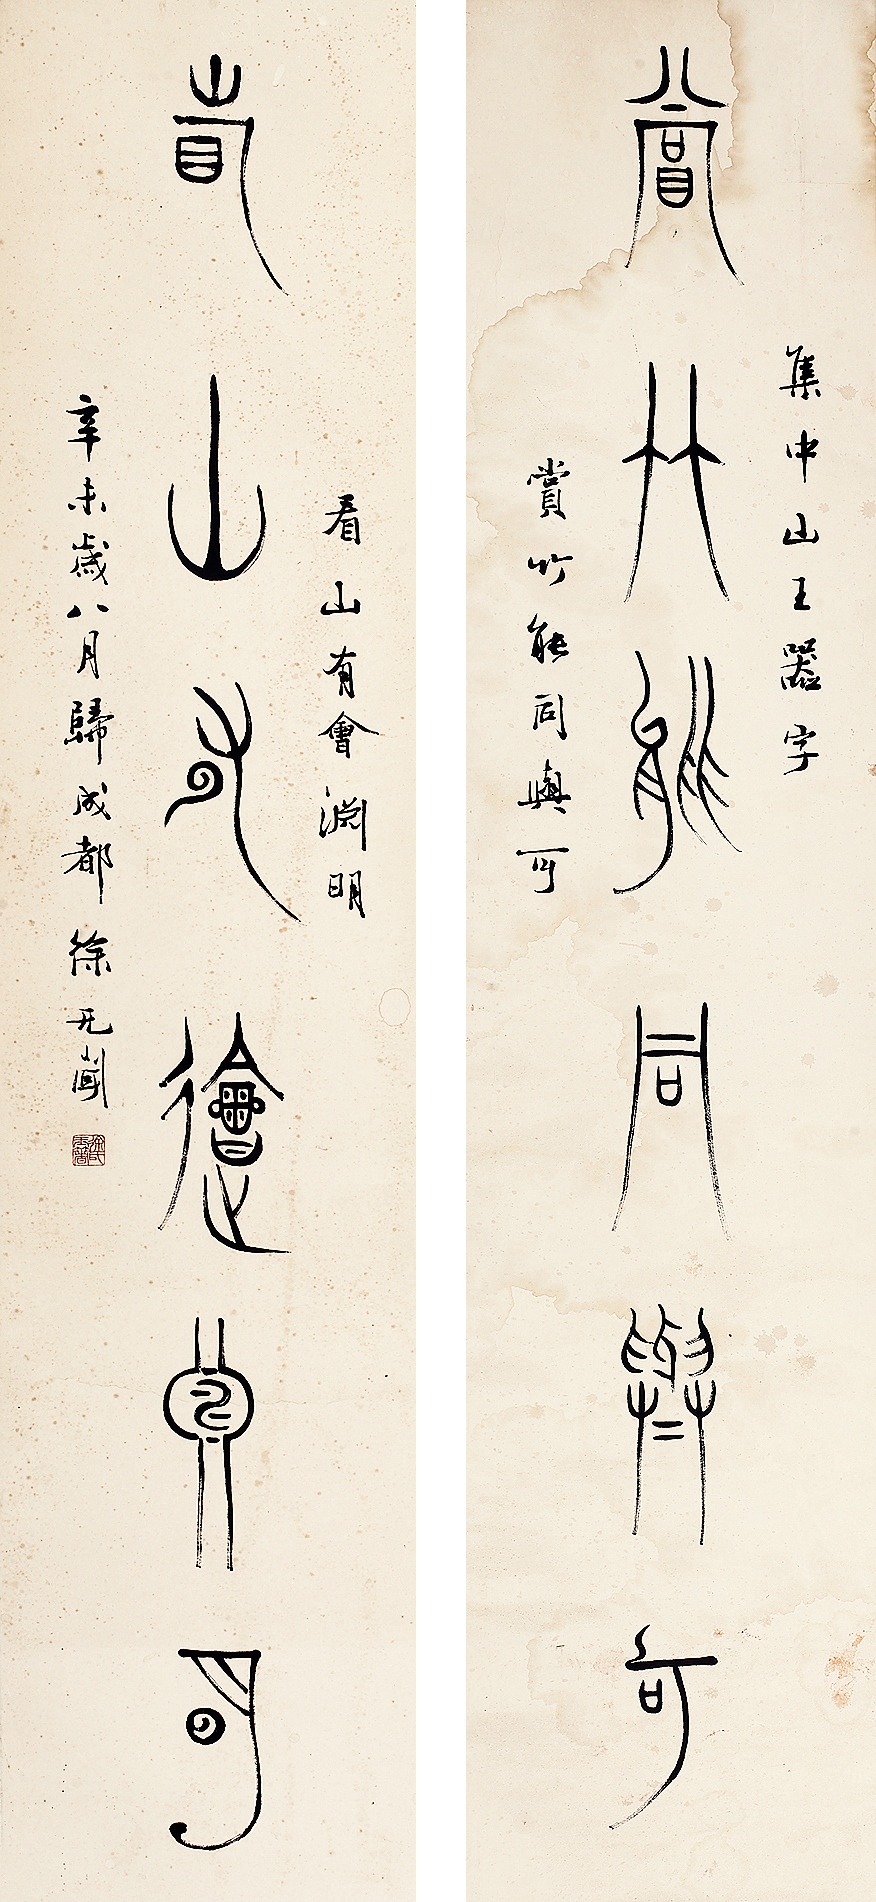 集中山王器字
賞竹能同與可
賞竹能同與可
看山有會淵明
看山有會淵明
辛未歲八月歸成都徐无聞